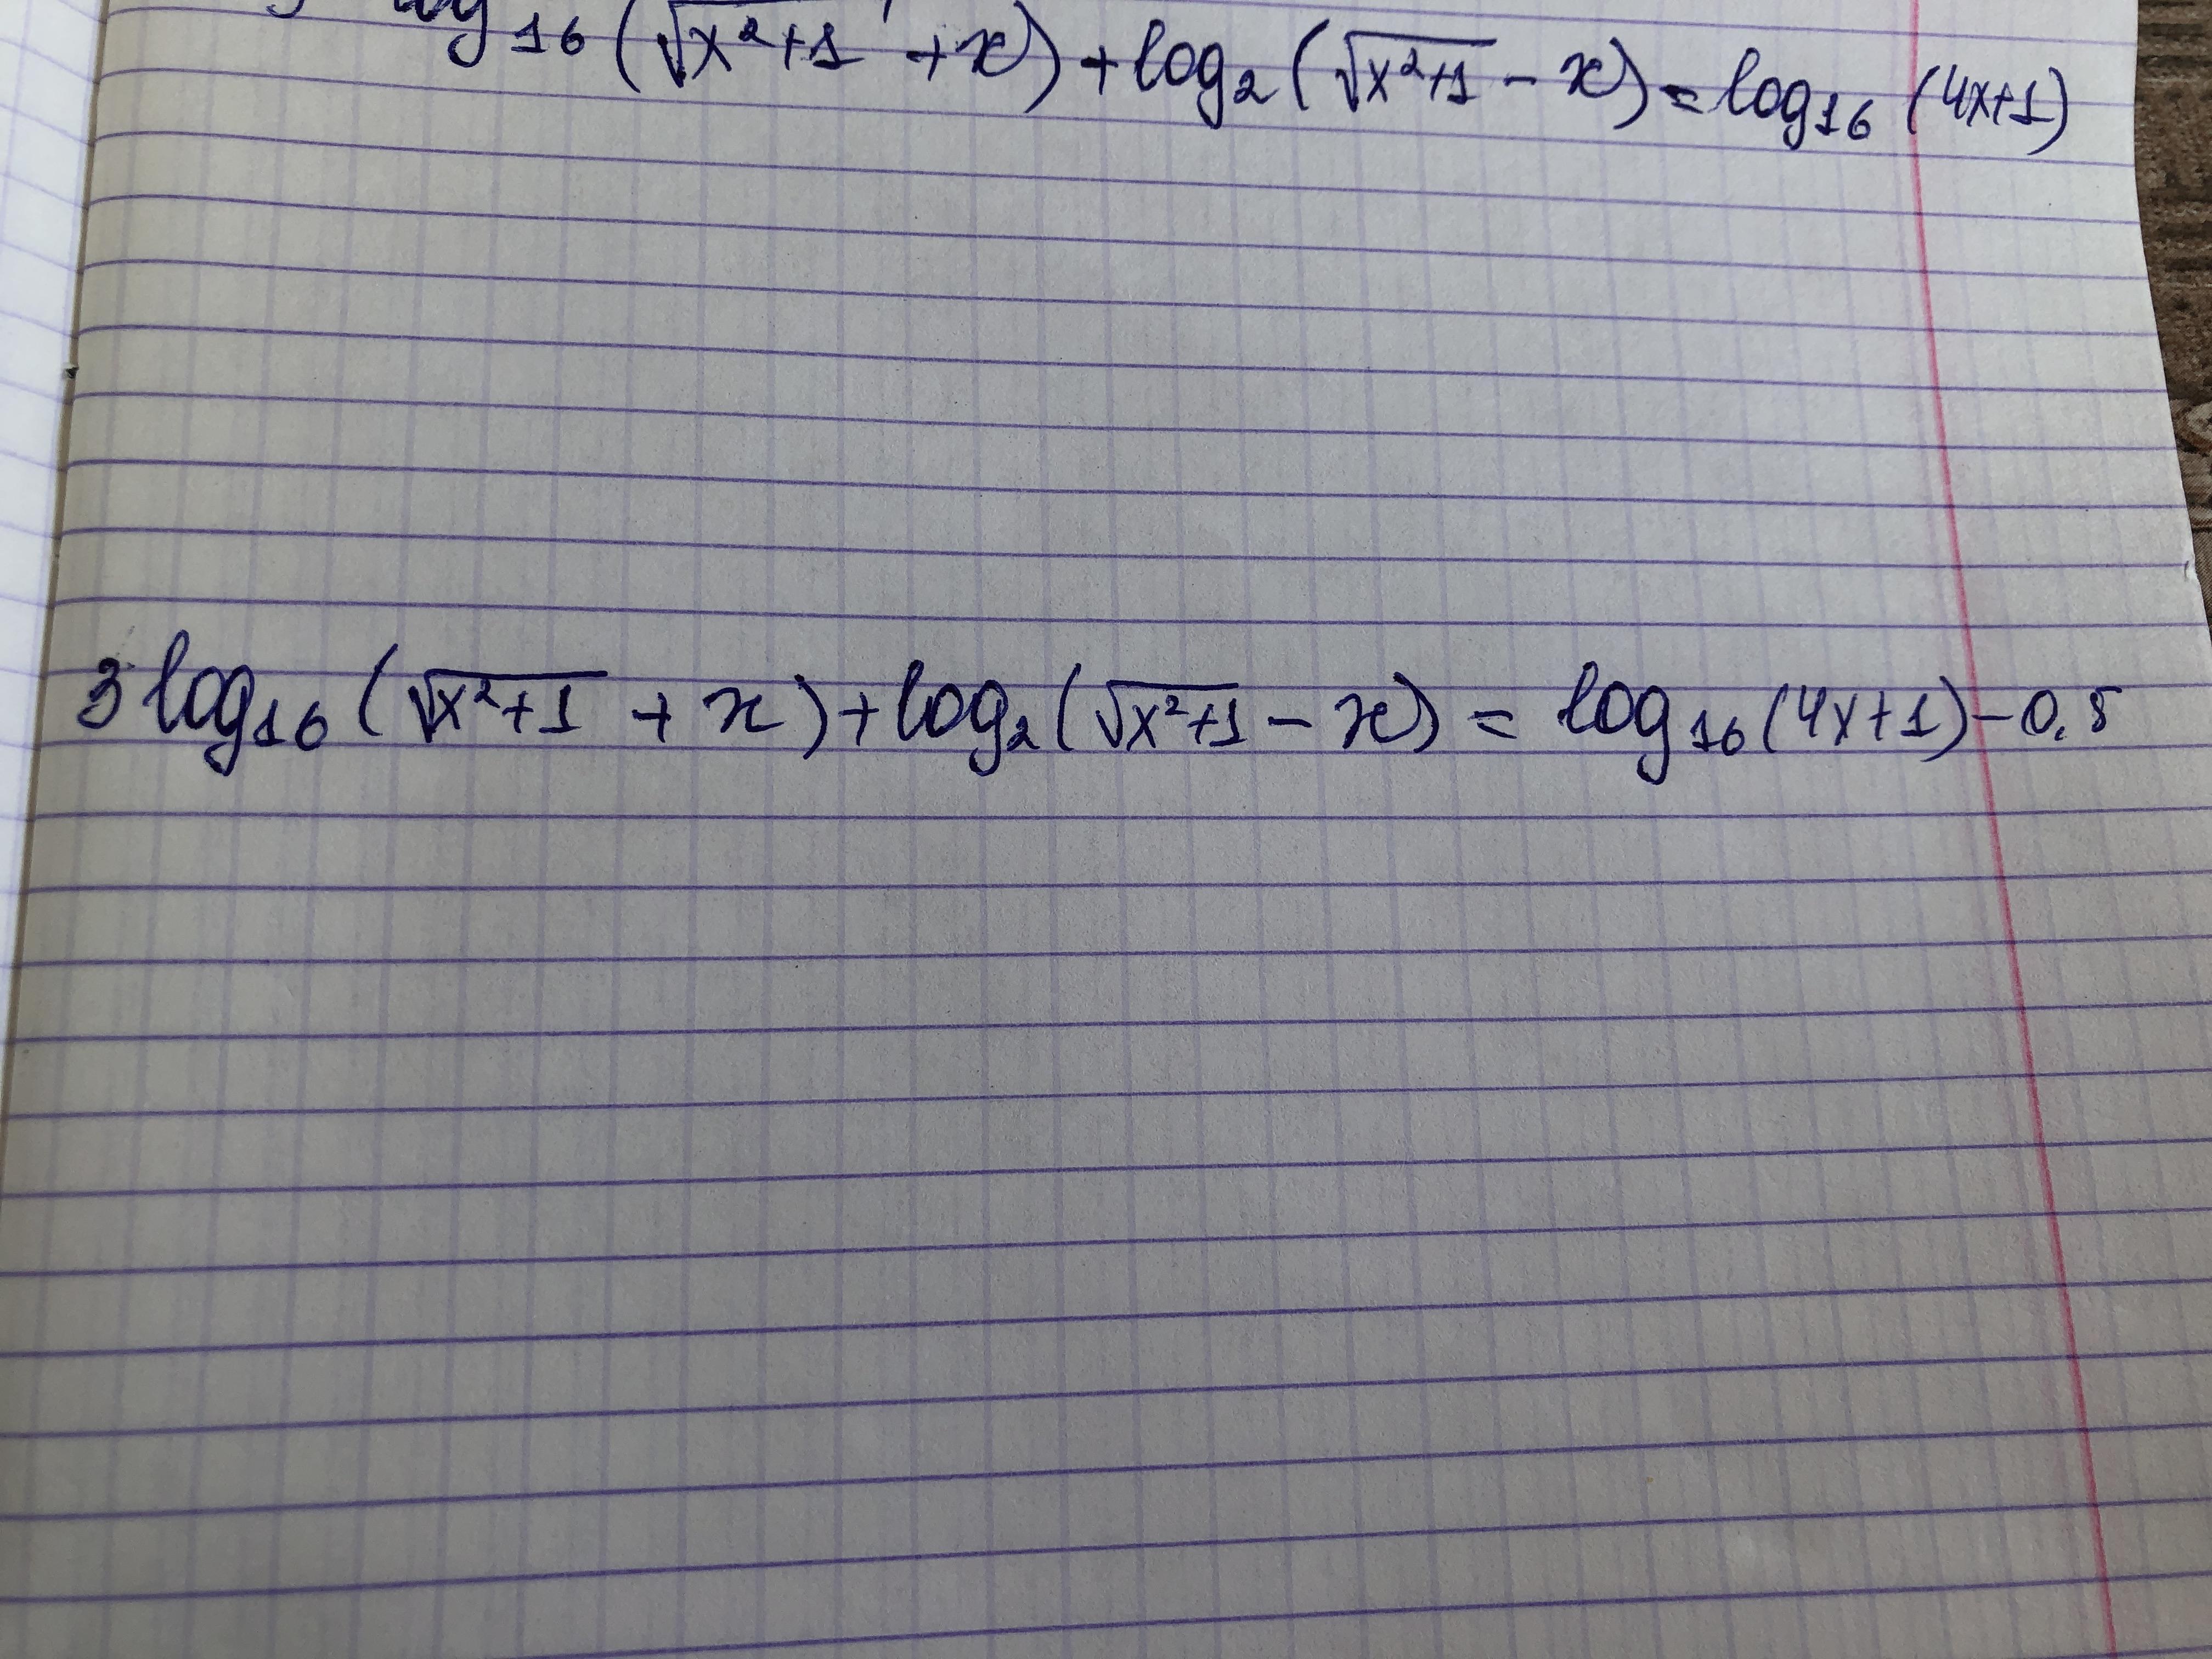 log₁₆(√(x²+1) + x) + log₂(√(x²+1) - x) = log₁₆(4x+1)
3 log₁₆(√(x²+1) + x) + log₂(√(x²+1) - x) = log₁₆(4x+1) - 0.5